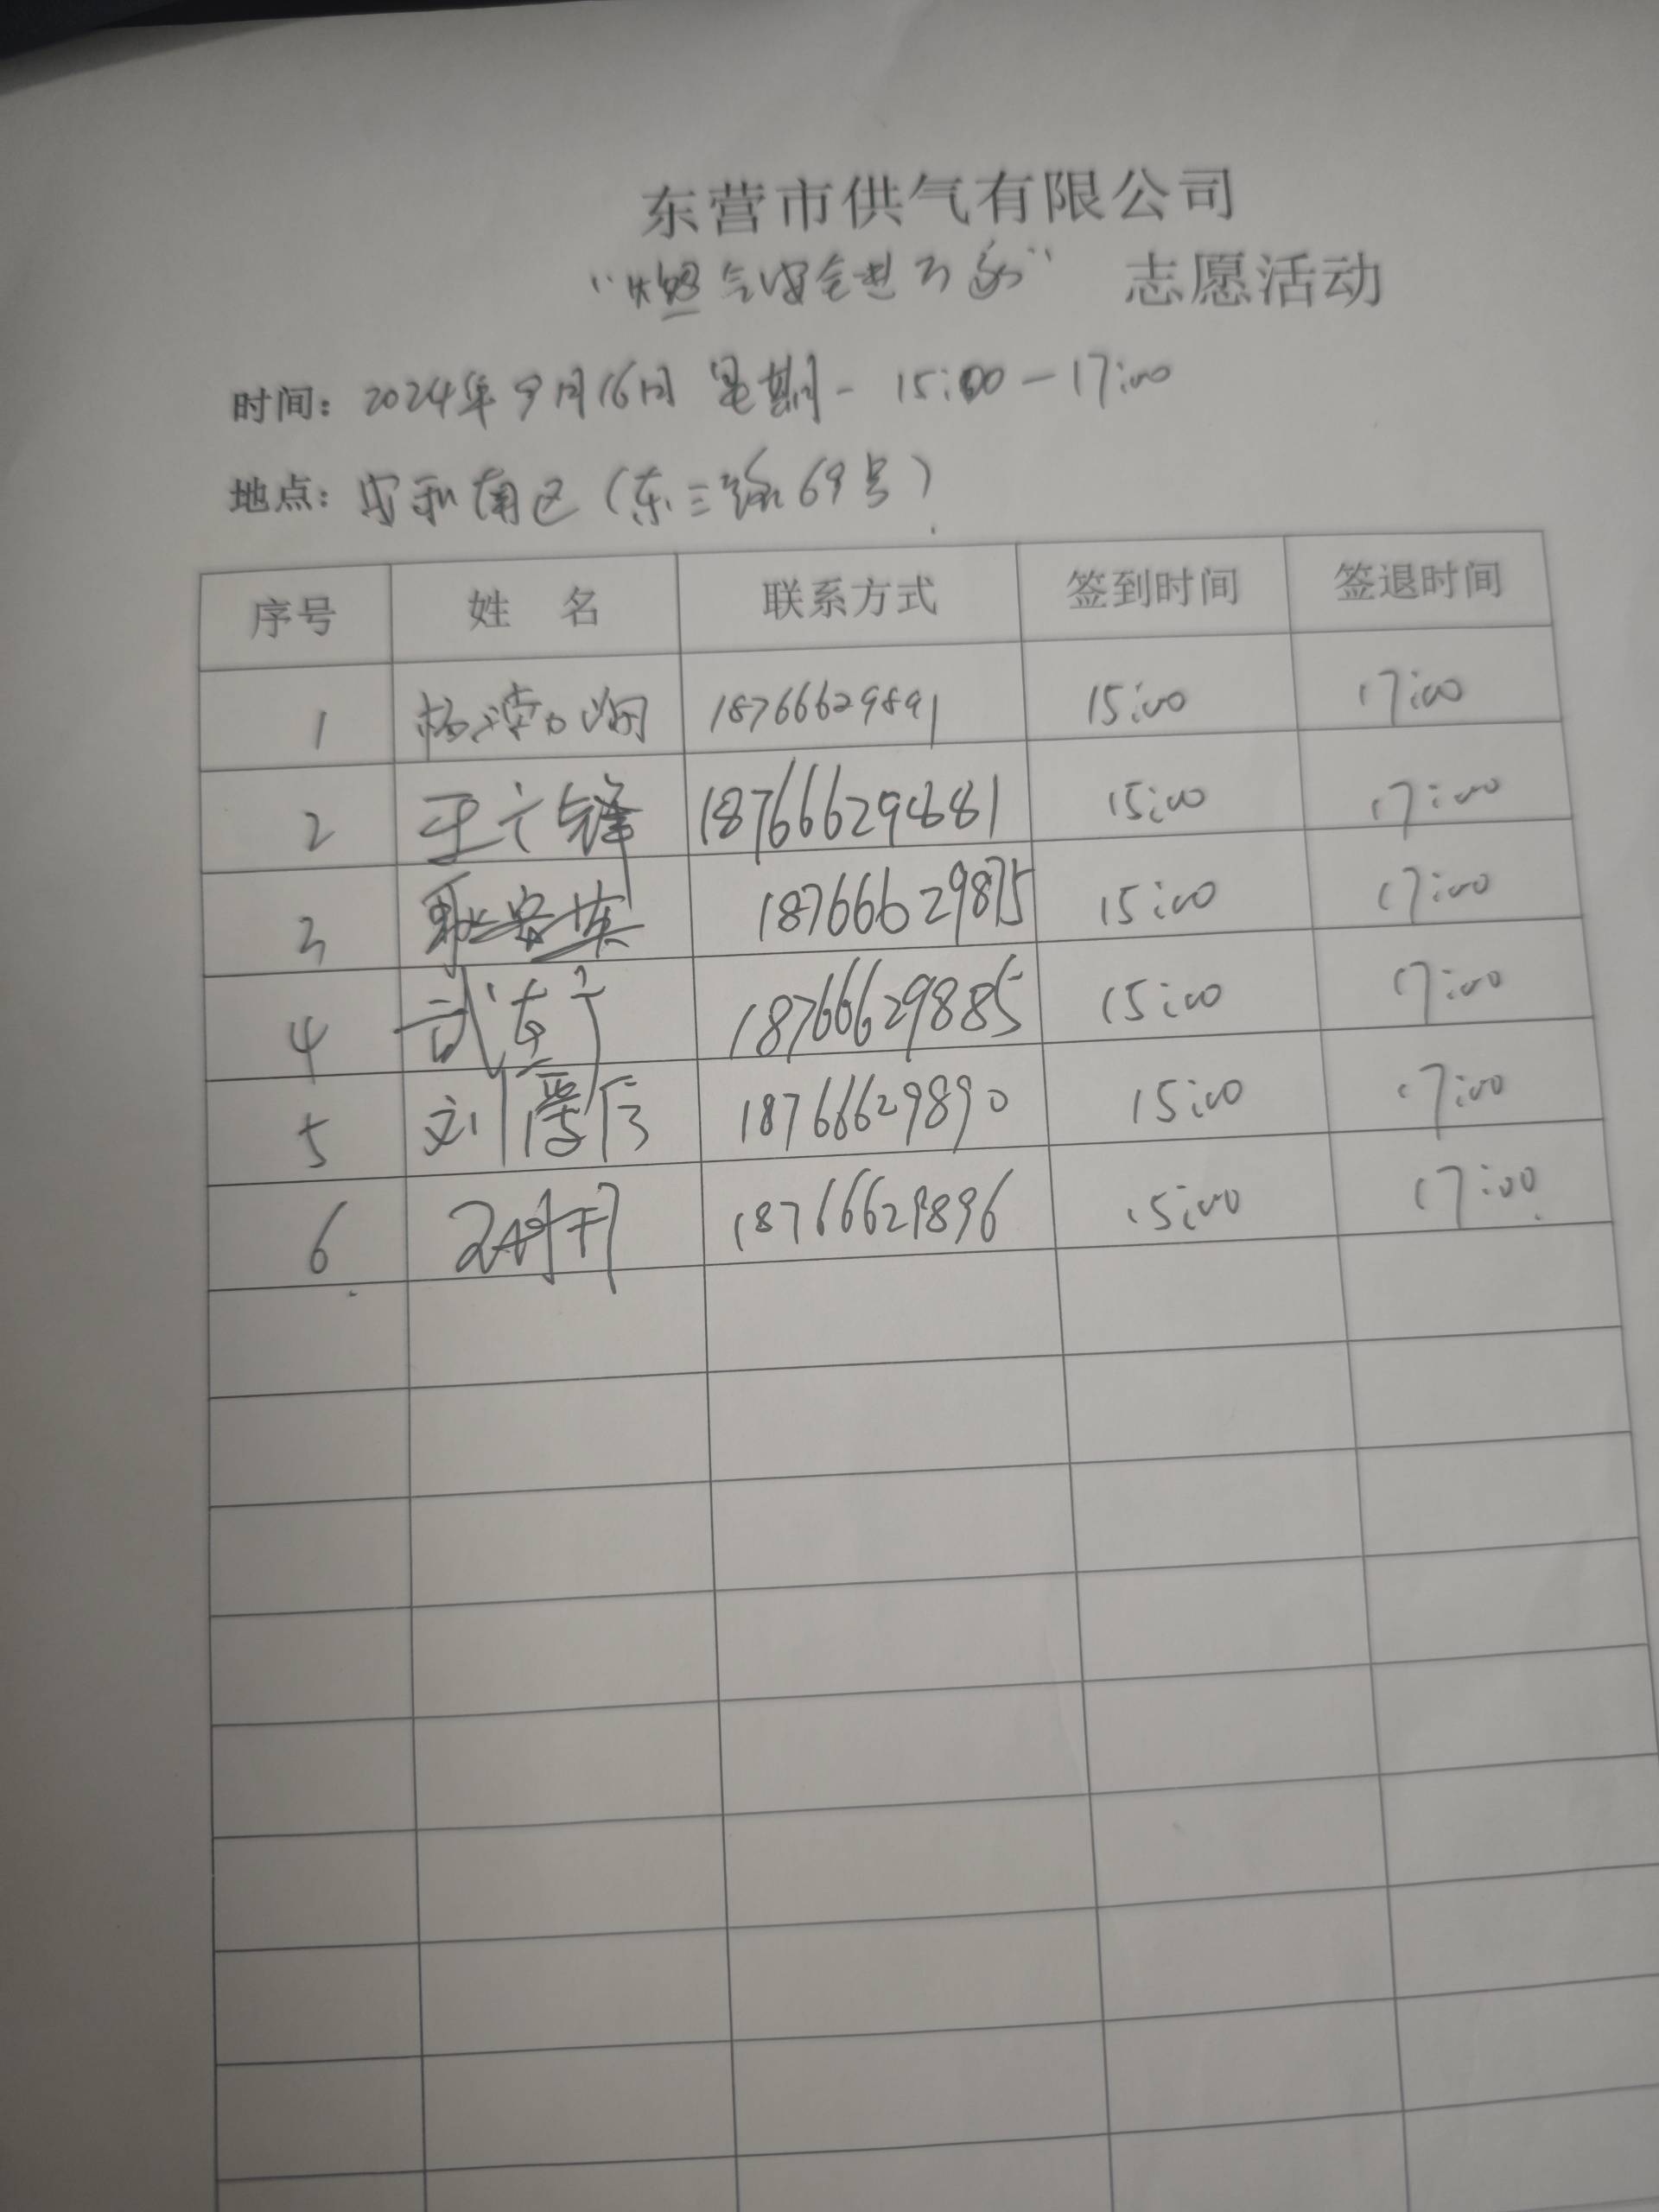 东营市供气有限公司
“燃气安全进万家” 志愿活动
时间: 2024年9月16日 星期一 15:00-17:00
地点: 安和南区(东三路69号)
序号 姓 名 联系方式 签到时间 签退时间
1 18766629891 15:00 17:00
2 王广锋 18766629881 15:00 17:00
3 18766629875 15:00 17:00
4 18766629885 15:00 17:00
5 刘 18766629890 15:00 17:00
6 18766629896 15:00 17:00